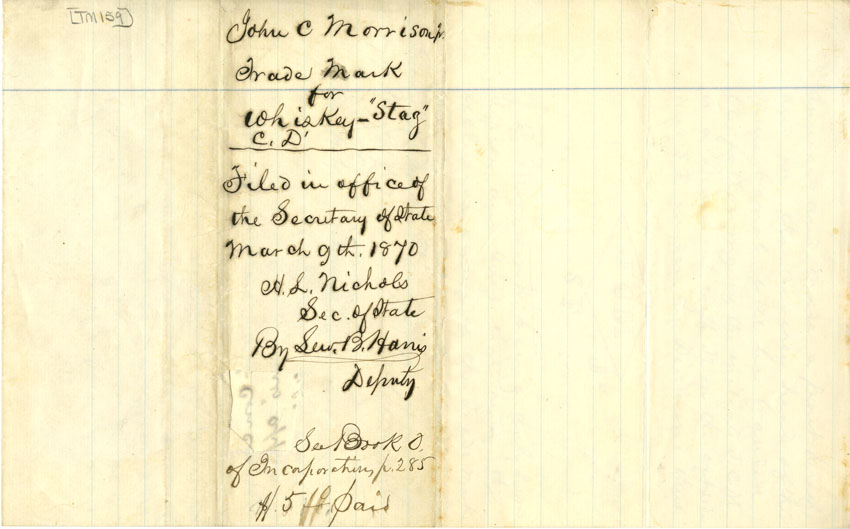 [TM 159]
John C Morrison jr.
Trade Mark
for
Whiskey - "Stag"
C. D'
Filed in office of
the Secretary of State
March 9th. 1870
H. L. Nichols
Sec. of State
By Lew. B. Harris
Deputy
See Book
of Incorporations, p. 285
5 paid